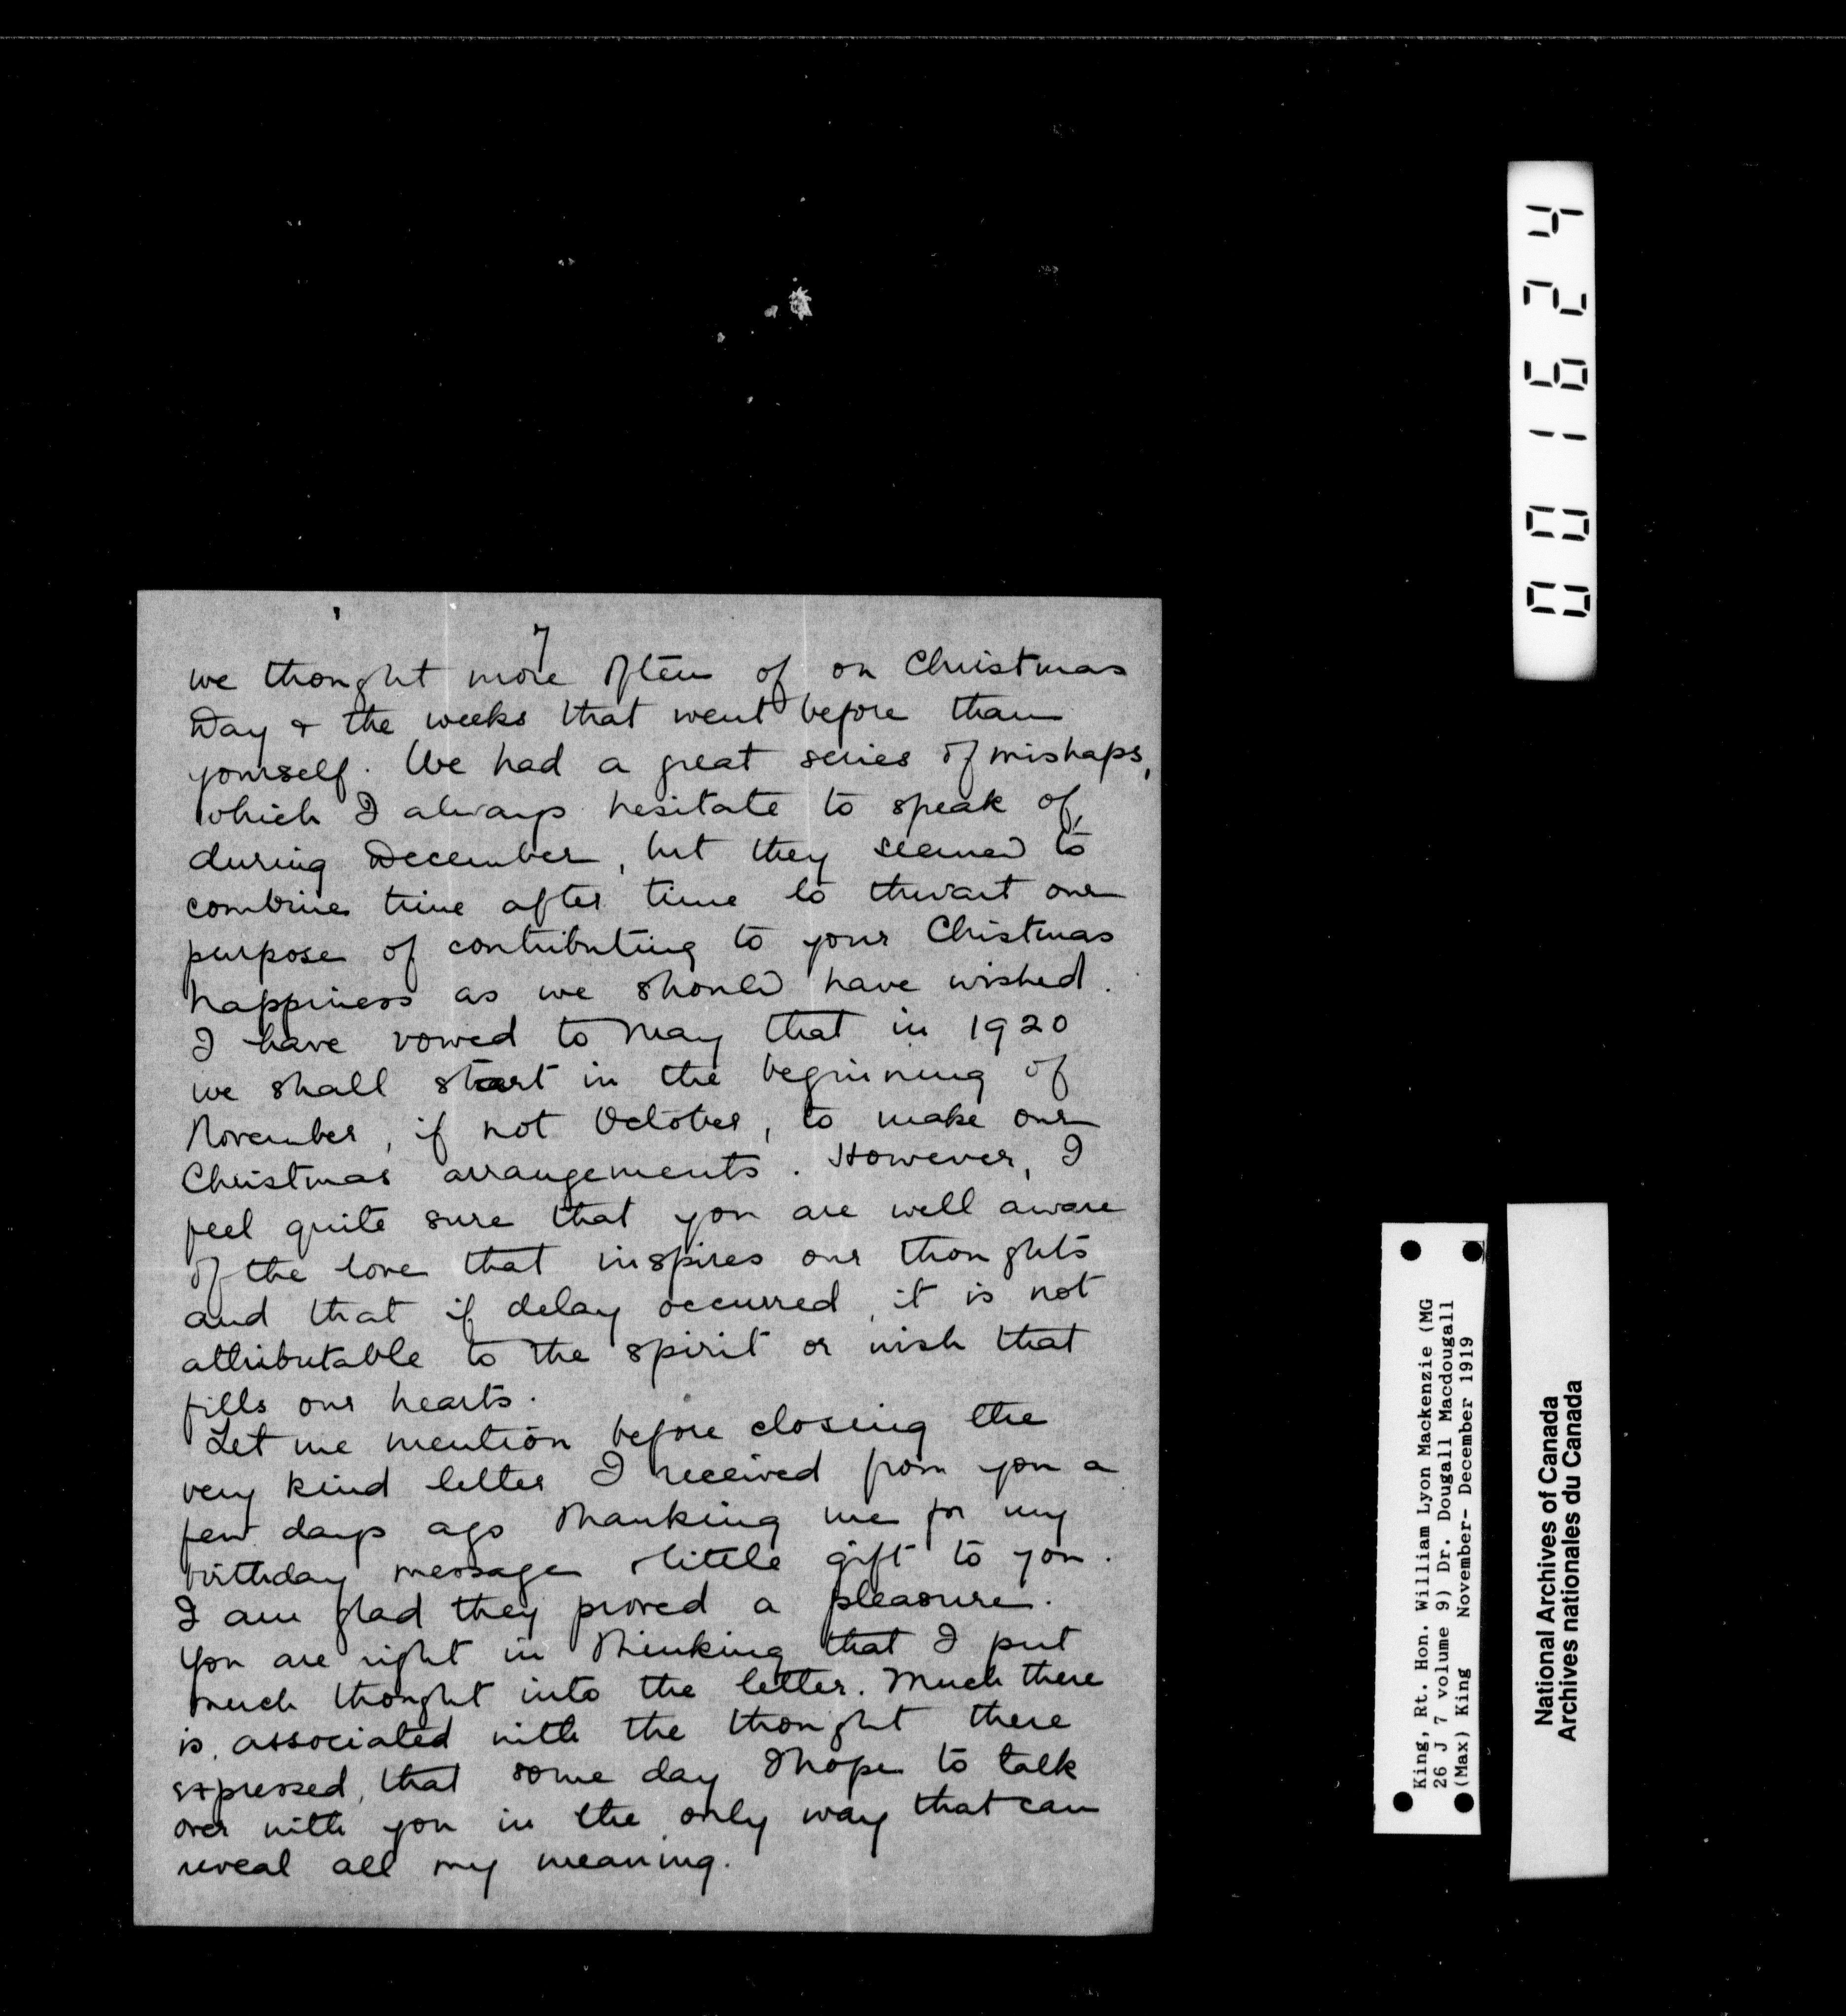 7
we thought more often of on Christmas
Day & the weeks that went before than
yourself. We had a great series of mishaps,
which I always hesitate to speak of,
during December, but they seemed to
combine time after time to thwart our
purpose of contributing to your Christmas
happiness as we should have wished.
I have vowed to May that in 1920
we shall start in the beginning of
November, if not October, to make our
Christmas arrangements. However, I
feel quite sure that you are well aware
of the love that inspires our thoughts
and that if delay occurred, it is not
attributable to the spirit or wish that
fills our hearts.
Let me mention before closing the
very kind letter I received from you a
few days ago thanking me for my
birthday message & little gift to you.
I am glad they proved a pleasure.
You are right in thinking that I put
much thought into the letter. Much there
is associated with the thought there
expressed, that some day I hope to talk
over with you in the only way that can
reveal all my meaning.
001624
King, Rt. Hon. William Lyon Mackenzie (MG
26 J 7 volume 9) Dr. Dougall Macdougall
(Max) King November- December 1919
National Archives of Canada
Archives nationales du Canada